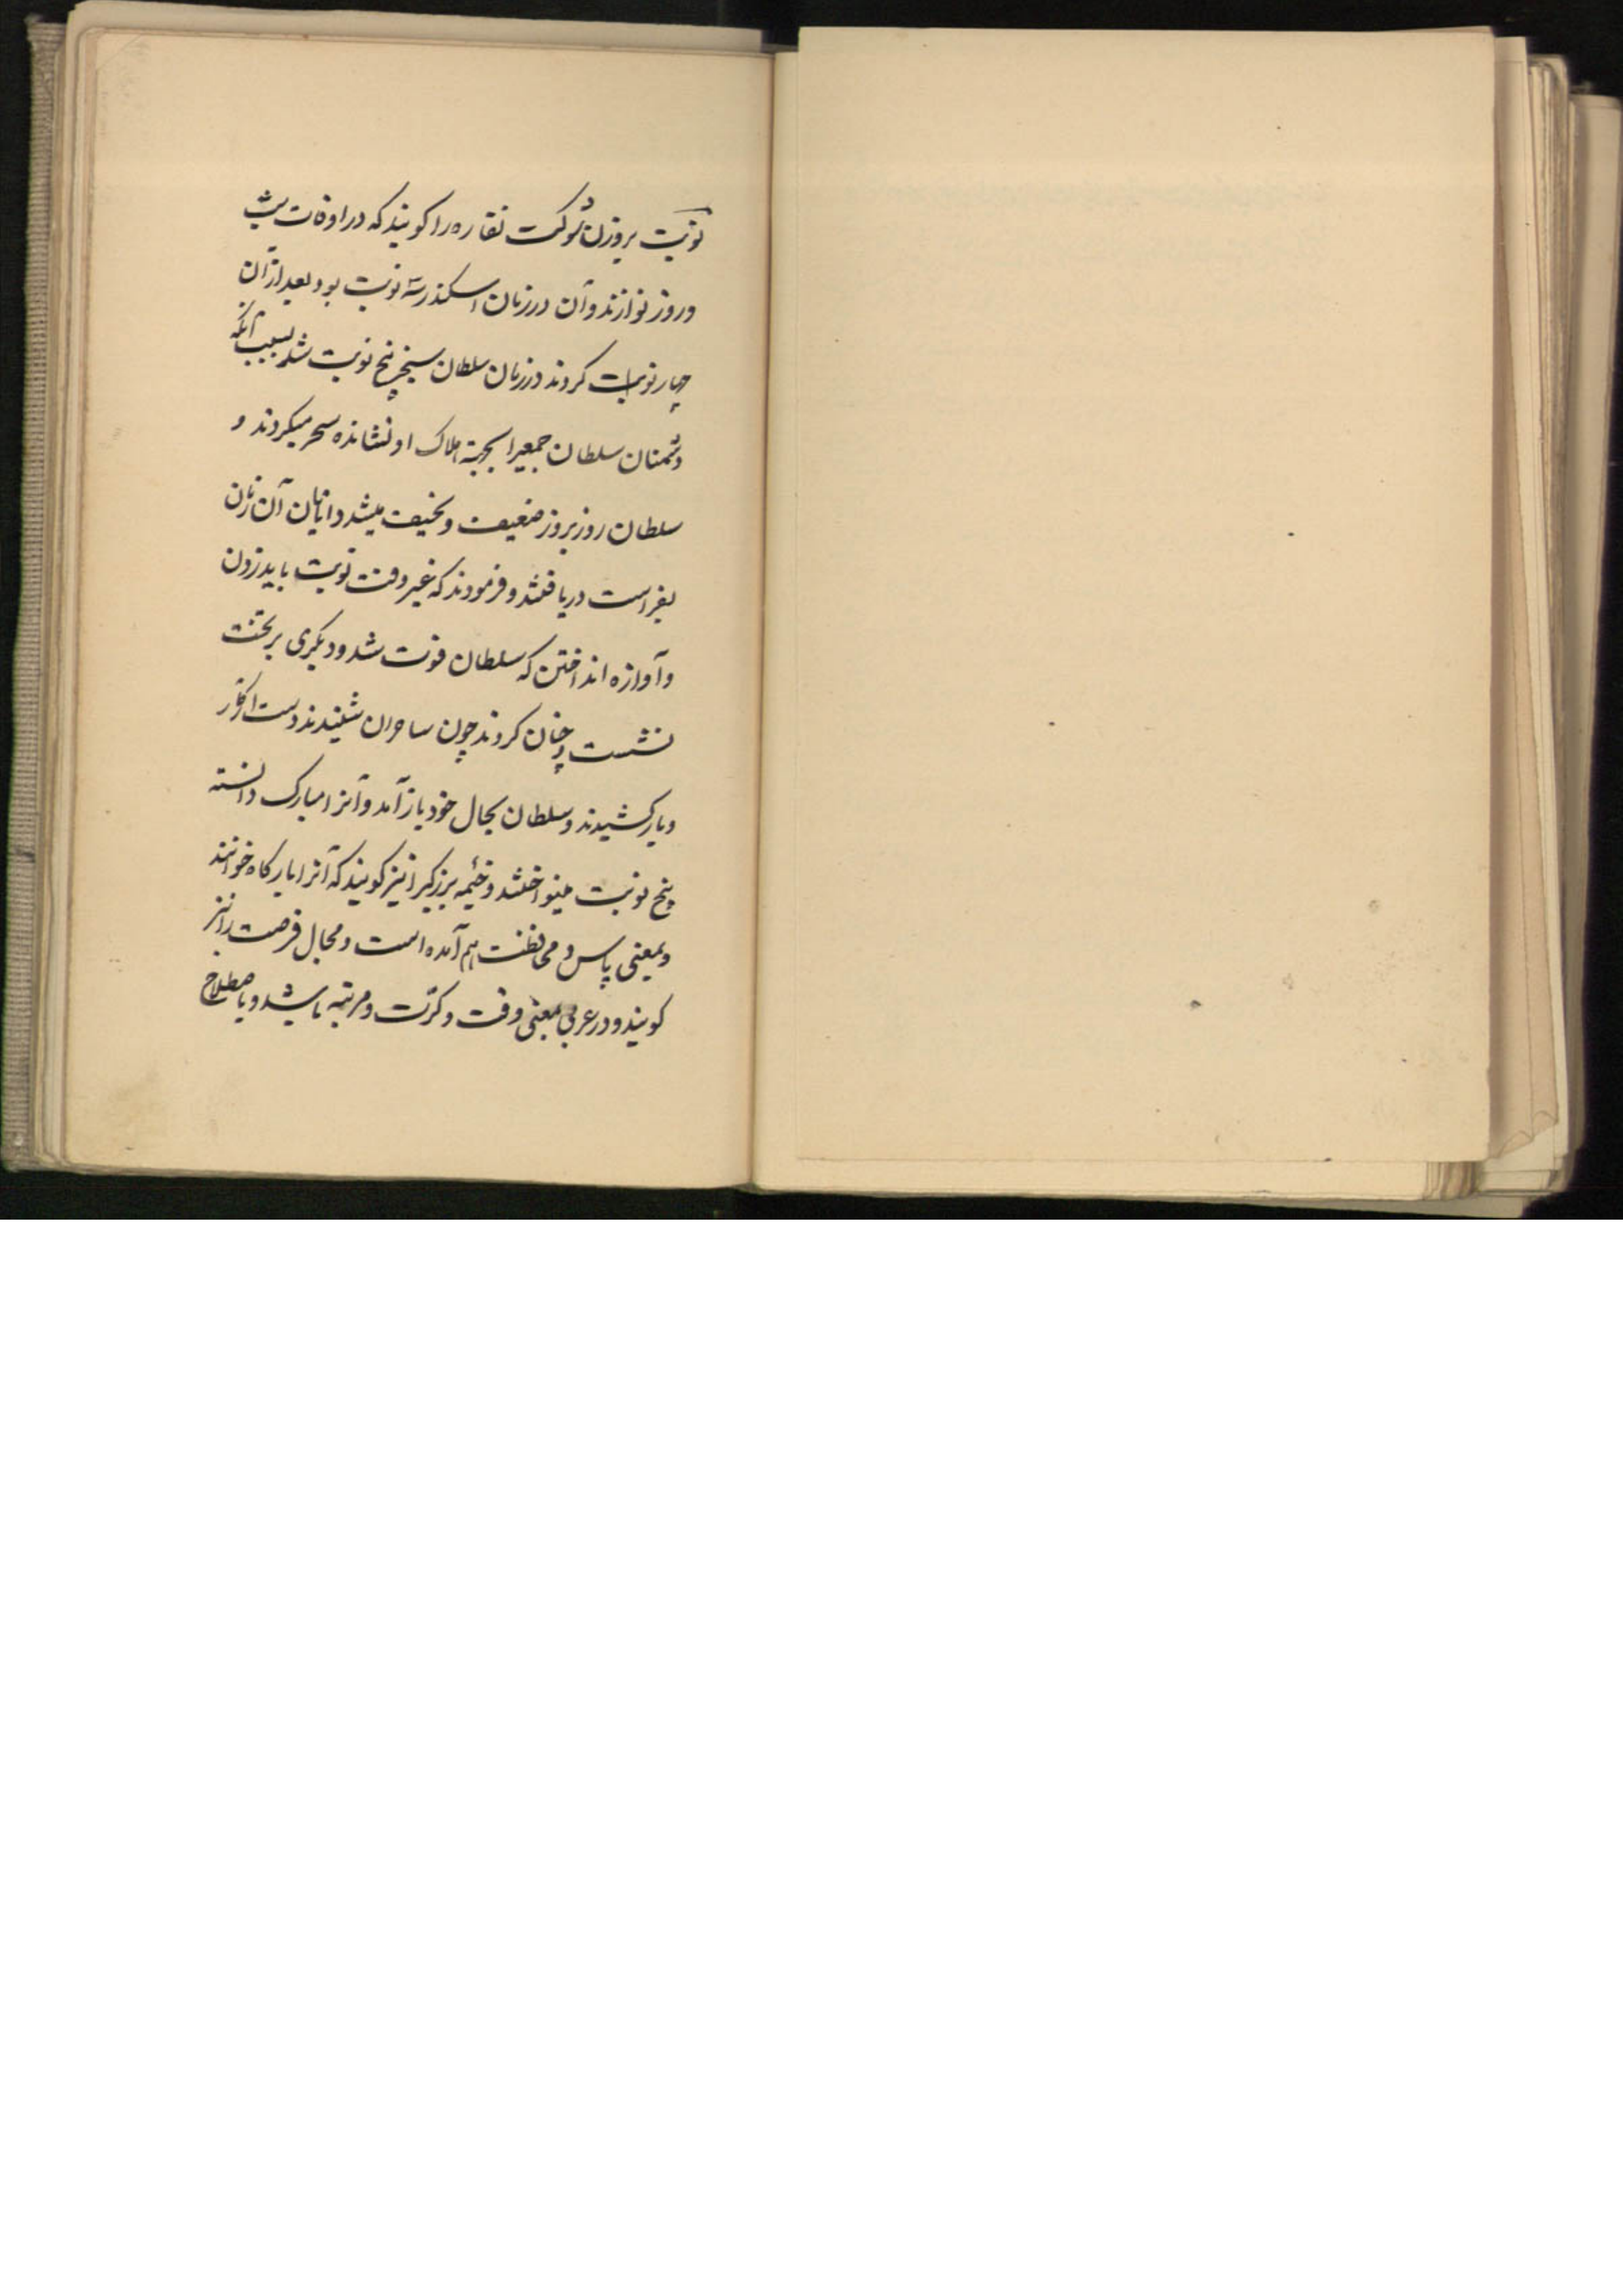 نوبت بروزن شوکت نقاره را کویند که در اوقات شب
وروز نوازند وآن در زمان اسکندر سه نوبت بود بعد ازآن
چهار نوبت کردند در زمان سلطان سنجر پنج نوبت شد بسبب آنکه
دشمنان سلطان جمعیرا بجهة هلاک او نشانده سحر میکردند و
سلطان روز بروز ضعیف و نحیف میشد دانایان آن زمان
بفراست دریافتند و فرمودند که غیر وقت نوبت باید زدن
و آوازه انداختن که سلطان فوت شد و دیکری بر تخت
نشست و چنان کردند چون ساحران شنیدند دست از کار
وبار کشیدند و سلطان بحال خود باز آمد و آنرا مبارک دانسته
پنج نوبت مینواختند و خیمه بزرکیرا نیز کویند که آنرا بارکاه خوانند
و بمعنی پاس و محافظت هم آمده است و مجال فرصت را نیز
کویند و در عربی بمعنی وقت و کرّت و مرتبه باشد و باصطلاح